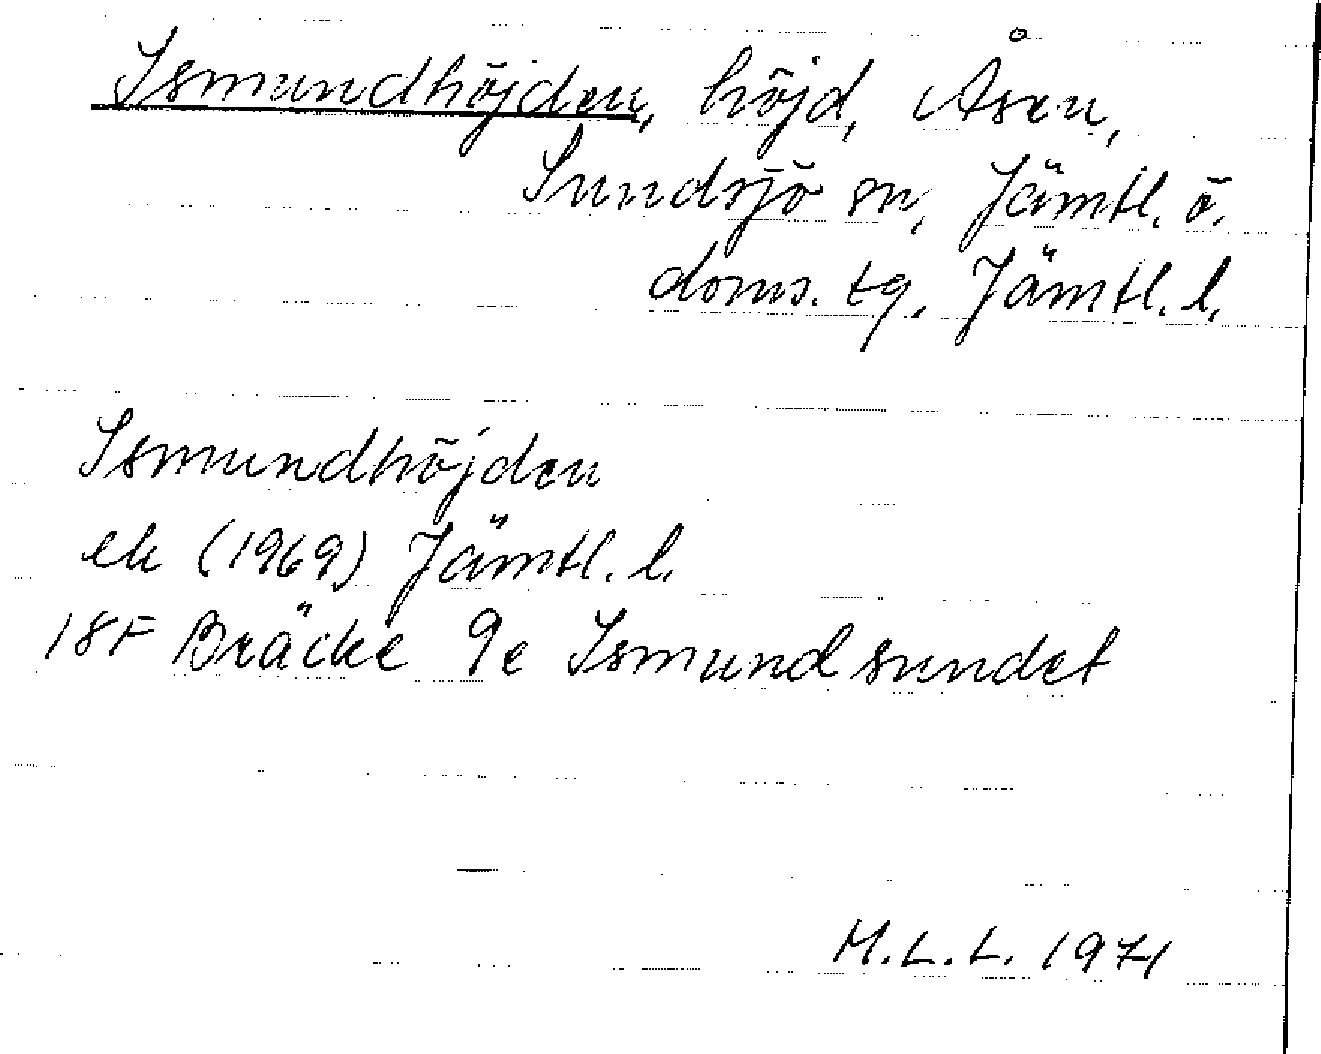 Ismundhöjden, höjd, Åsen,
Sundsjö sn, Jämtl. ö.
doms. tg, Jämtl. l.
Ismundhöjden
ek (1969) Jämtl. l.
18F Bräcke 9e Ismundsundet
M.L.L. 1971